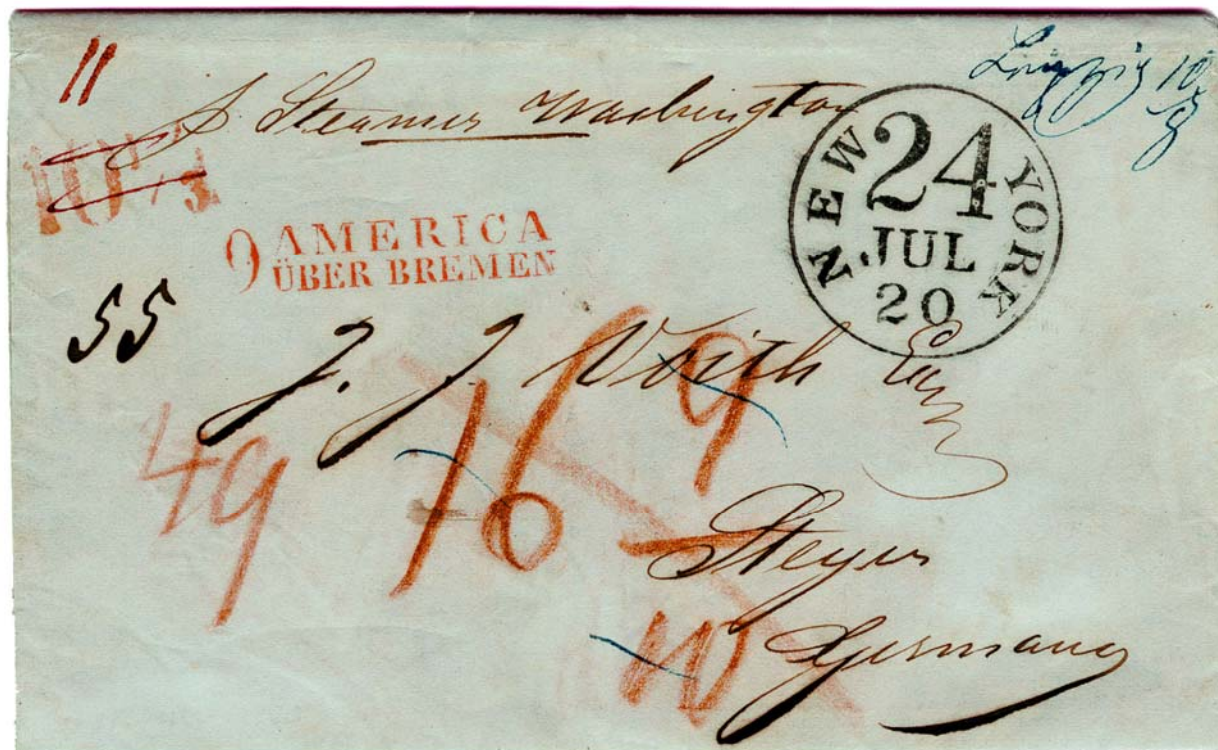 11
p. Steamer Washington
NEW YORK
24
JUL
20
10
9 AMERICA
ÜBER BREMEN
55
J. J. Voith
49
16
9
Steyer
Germany